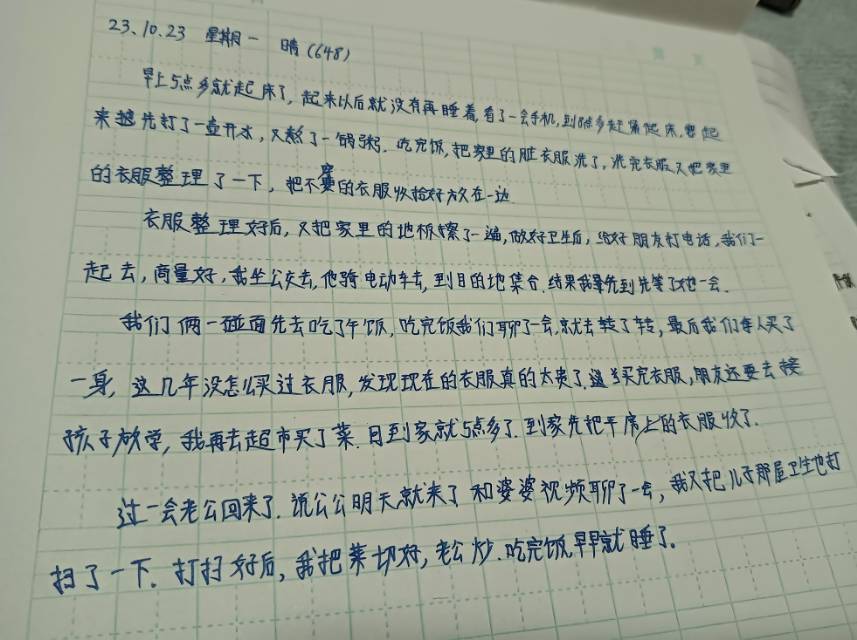 23.10.23 星期一 晴(648)
早上5点多就起床了,起来以后就没有再睡着,看了一会手机,到6点多赶紧起床,要起
来趁先打了一壶开水,又熬了一锅粥.吃完饭,把家里的脏衣服洗了,洗完衣服又把家里
的衣服整理了一下,把不穿的衣服收拾好放在一边
衣服整理好后,又把家里的地板擦了一遍,做好卫生后,给好朋友打电话,我们一
起去,商量好,我坐公交去,他骑电动车去,到目的地集合.结果我是先到先等了她一会.
我们俩一碰面先去吃了午饭,吃完饭我们聊了一会,就去转了转,最后我们每人买了
一身,这几年没怎么买过衣服,发现现在的衣服真的太贵了.买完衣服,朋友还要去接
孩子放学,我再去超市买了菜.回到家就5点多了.到家先把平席上的衣服收了.
过一会老公回来了.说公公明天就来了和婆婆视频聊了一会,我又把儿子那屋卫生也打
扫了一下.打扫好后,我把菜切好,老公炒.吃完饭早早就睡了.